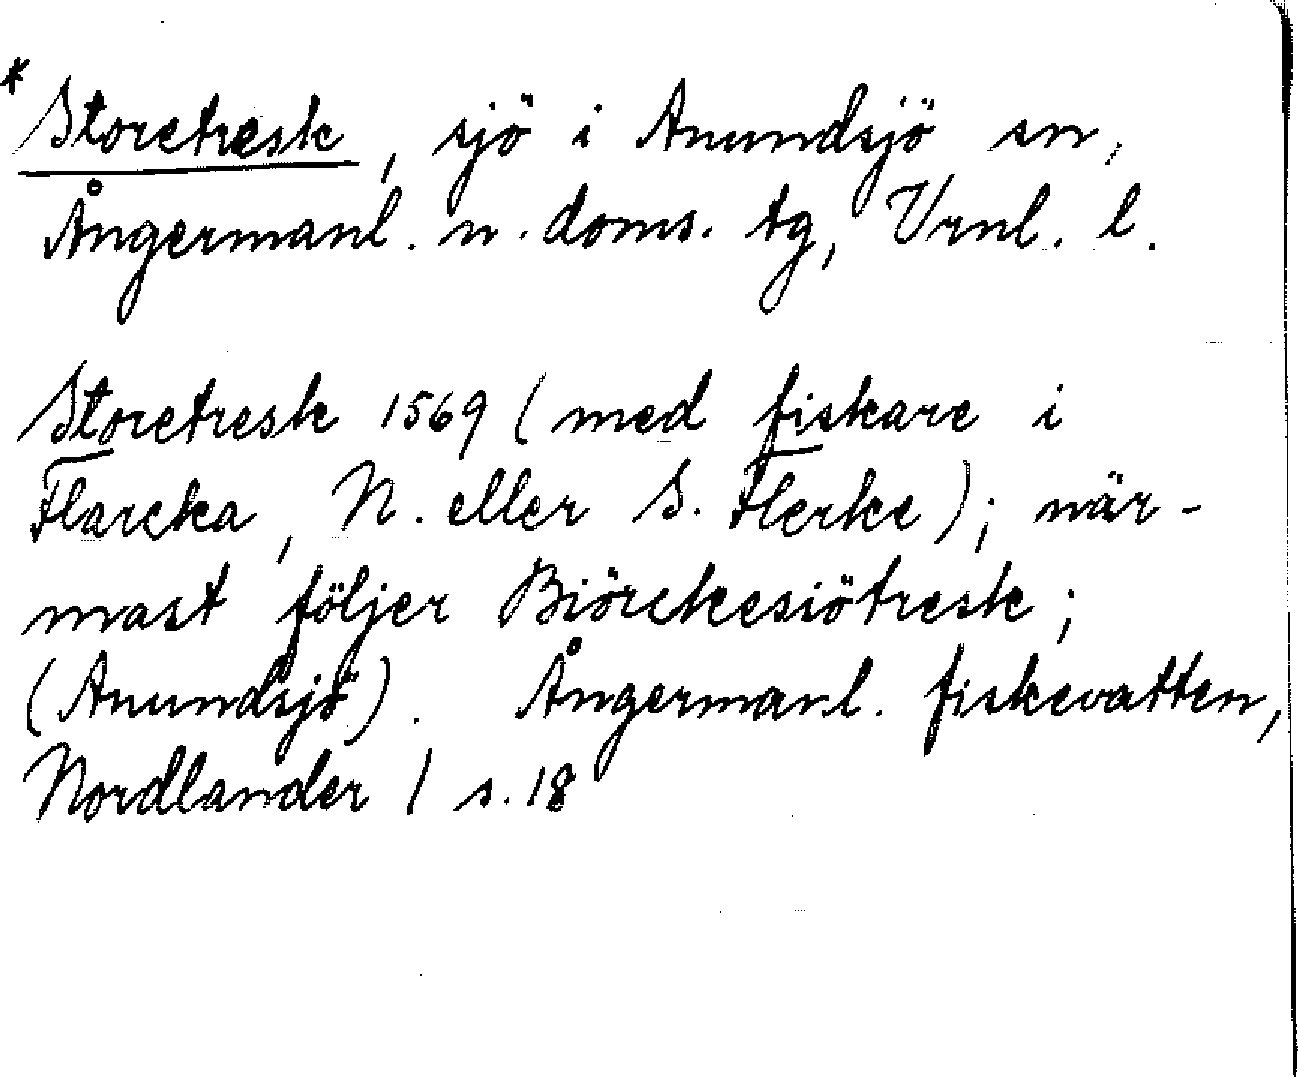 * Storetresk, sjö i Anundsjö sn,
Ångermanl. n. doms. tg, Vrnl. l.
Storetresk 1569 (med fiskare i
Flarcka, N. eller S. Flerke); när-
mast följer Biörckesiötresk;
(Anundsjö). Ångermanl. fiskevatten,
Nordlander 1 s. 18